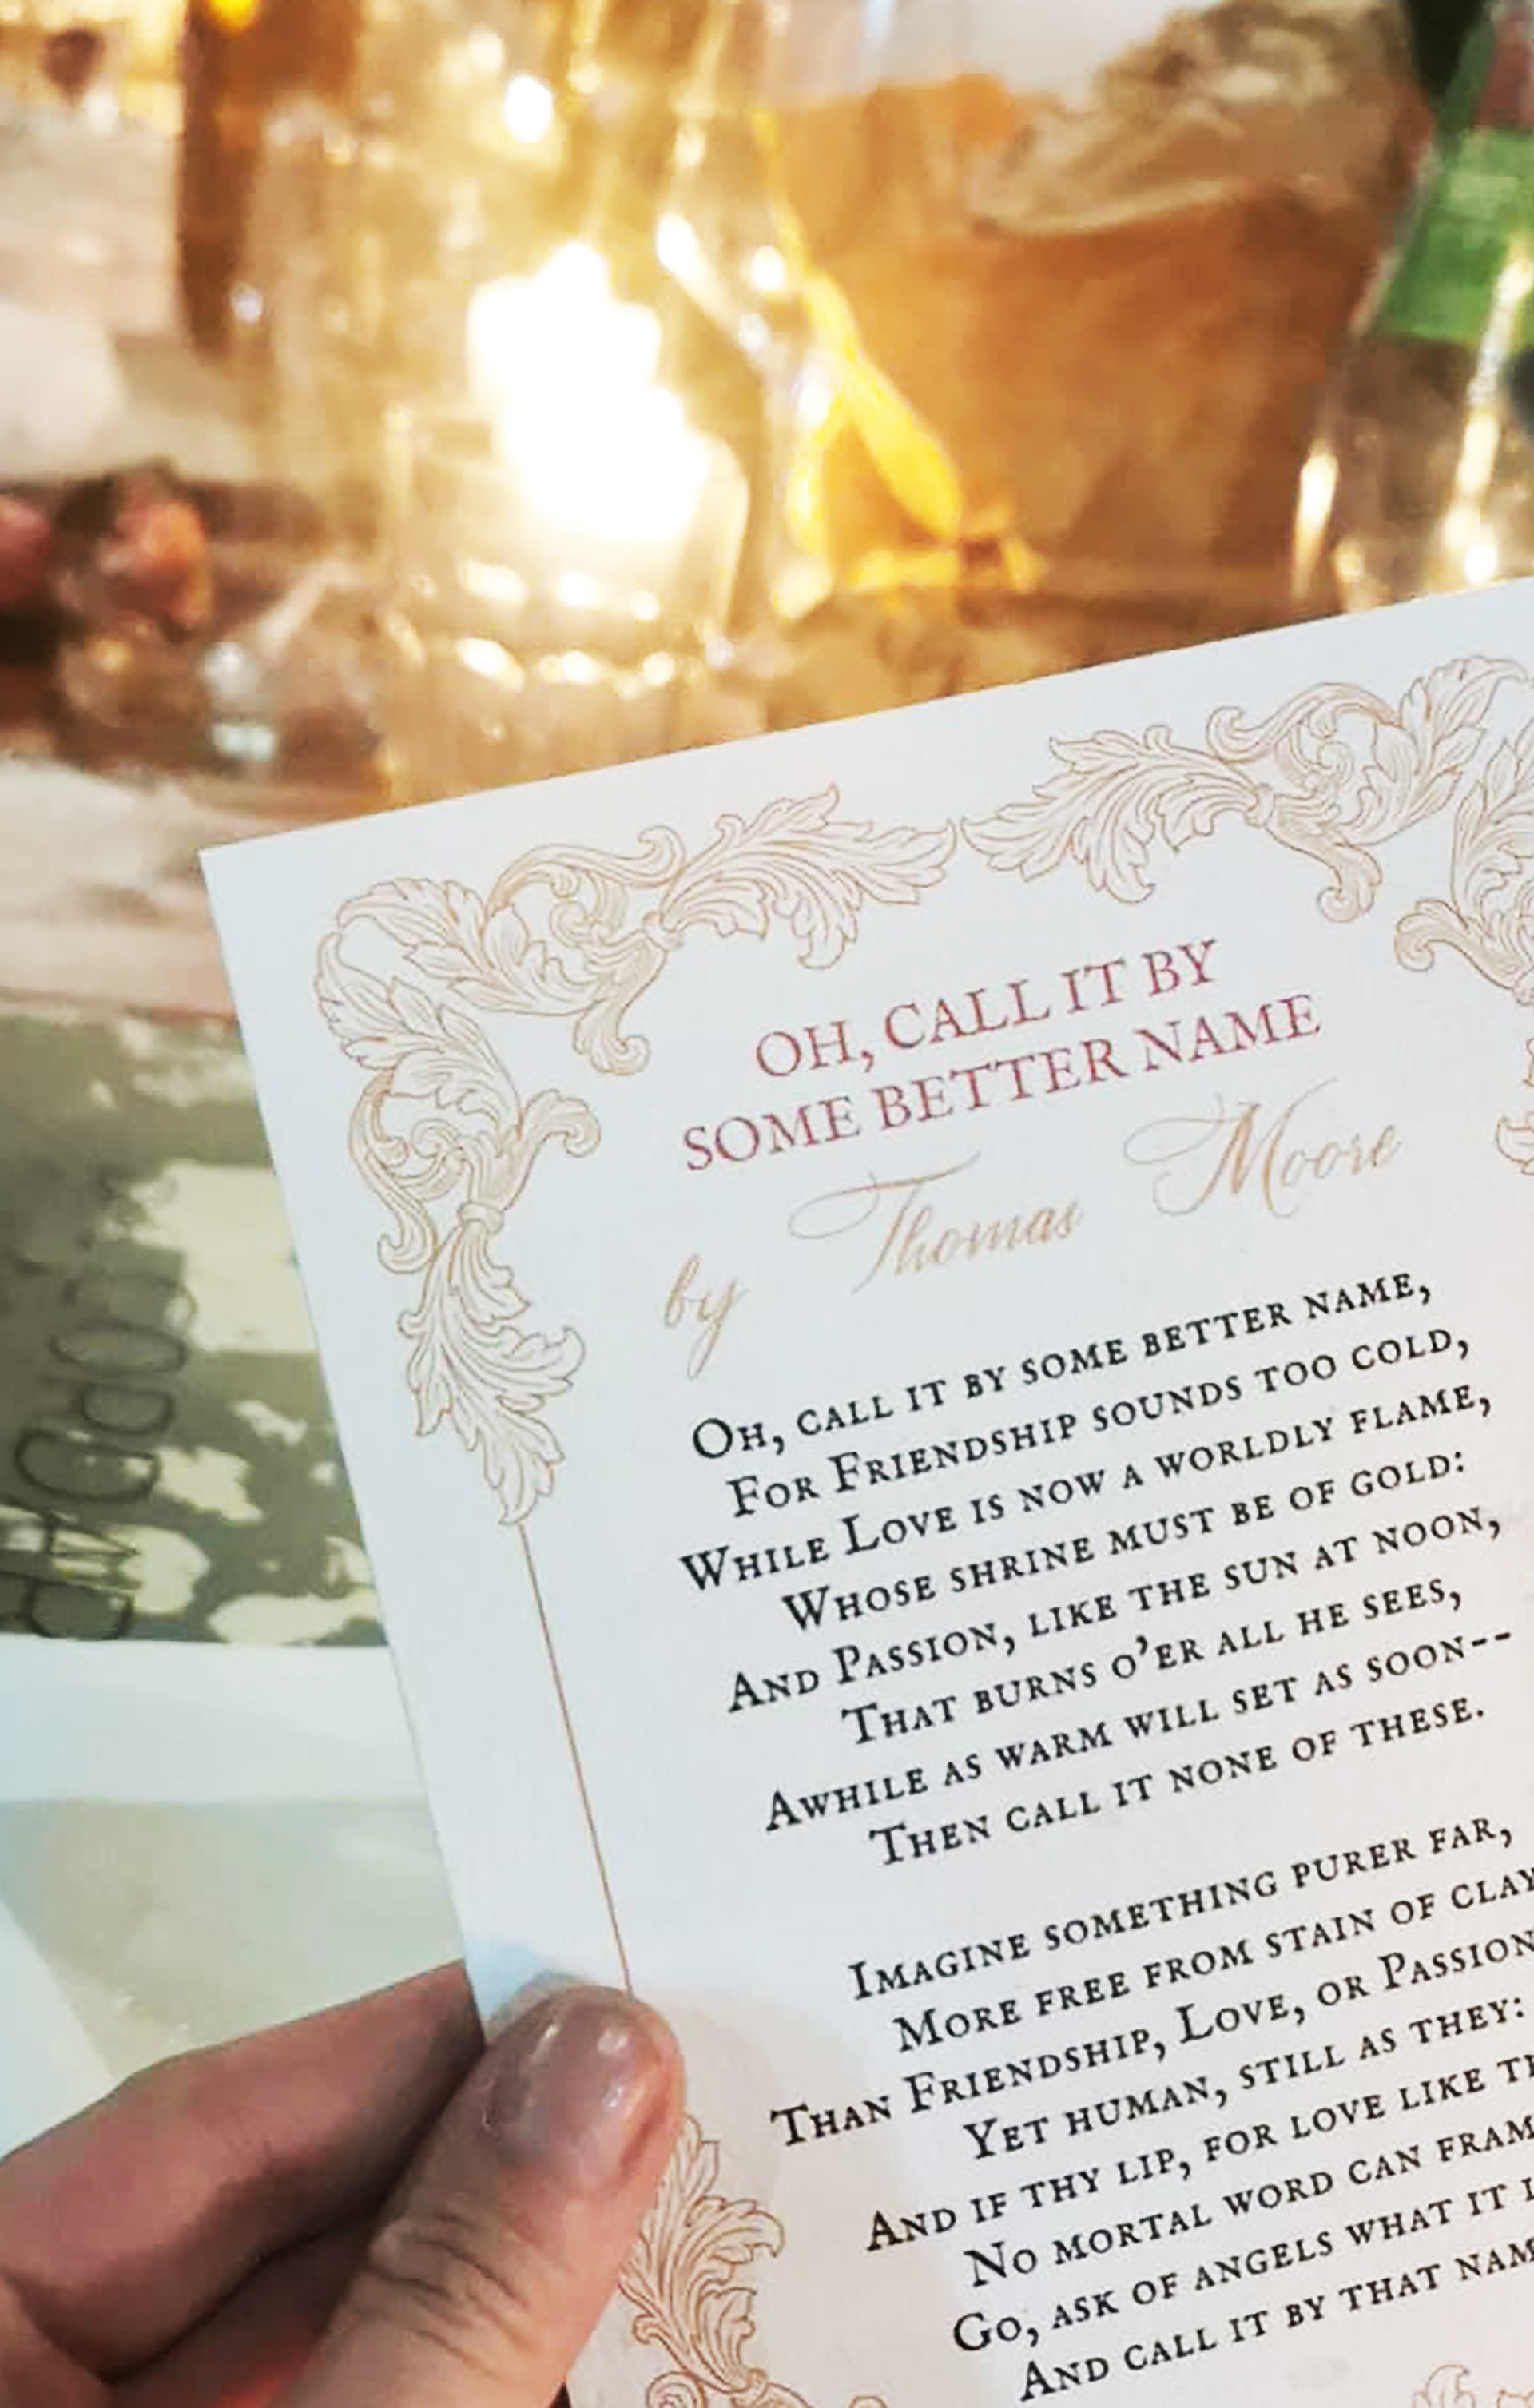 OH, CALL IT BY
SOME BETTER NAME
by Thomas Moore
OH, CALL IT BY SOME BETTER NAME,
FOR FRIENDSHIP SOUNDS TOO COLD,
WHILE LOVE IS NOW A WORLDLY FLAME,
WHOSE SHRINE MUST BE OF GOLD:
AND PASSION, LIKE THE SUN AT NOON,
THAT BURNS O'ER ALL HE SEES,
AWHILE AS WARM WILL SET AS SOON--
THEN CALL IT NONE OF THESE.
IMAGINE SOMETHING PURER FAR,
MORE FREE FROM STAIN OF CLAY
THAN FRIENDSHIP, LOVE, OR PASSION
YET HUMAN, STILL AS THEY:
AND IF THY LIP, FOR LOVE LIKE
NO MORTAL WORD CAN FRAM
GO, ASK OF ANGELS WHAT IT
AND CALL IT BY THAT NAM